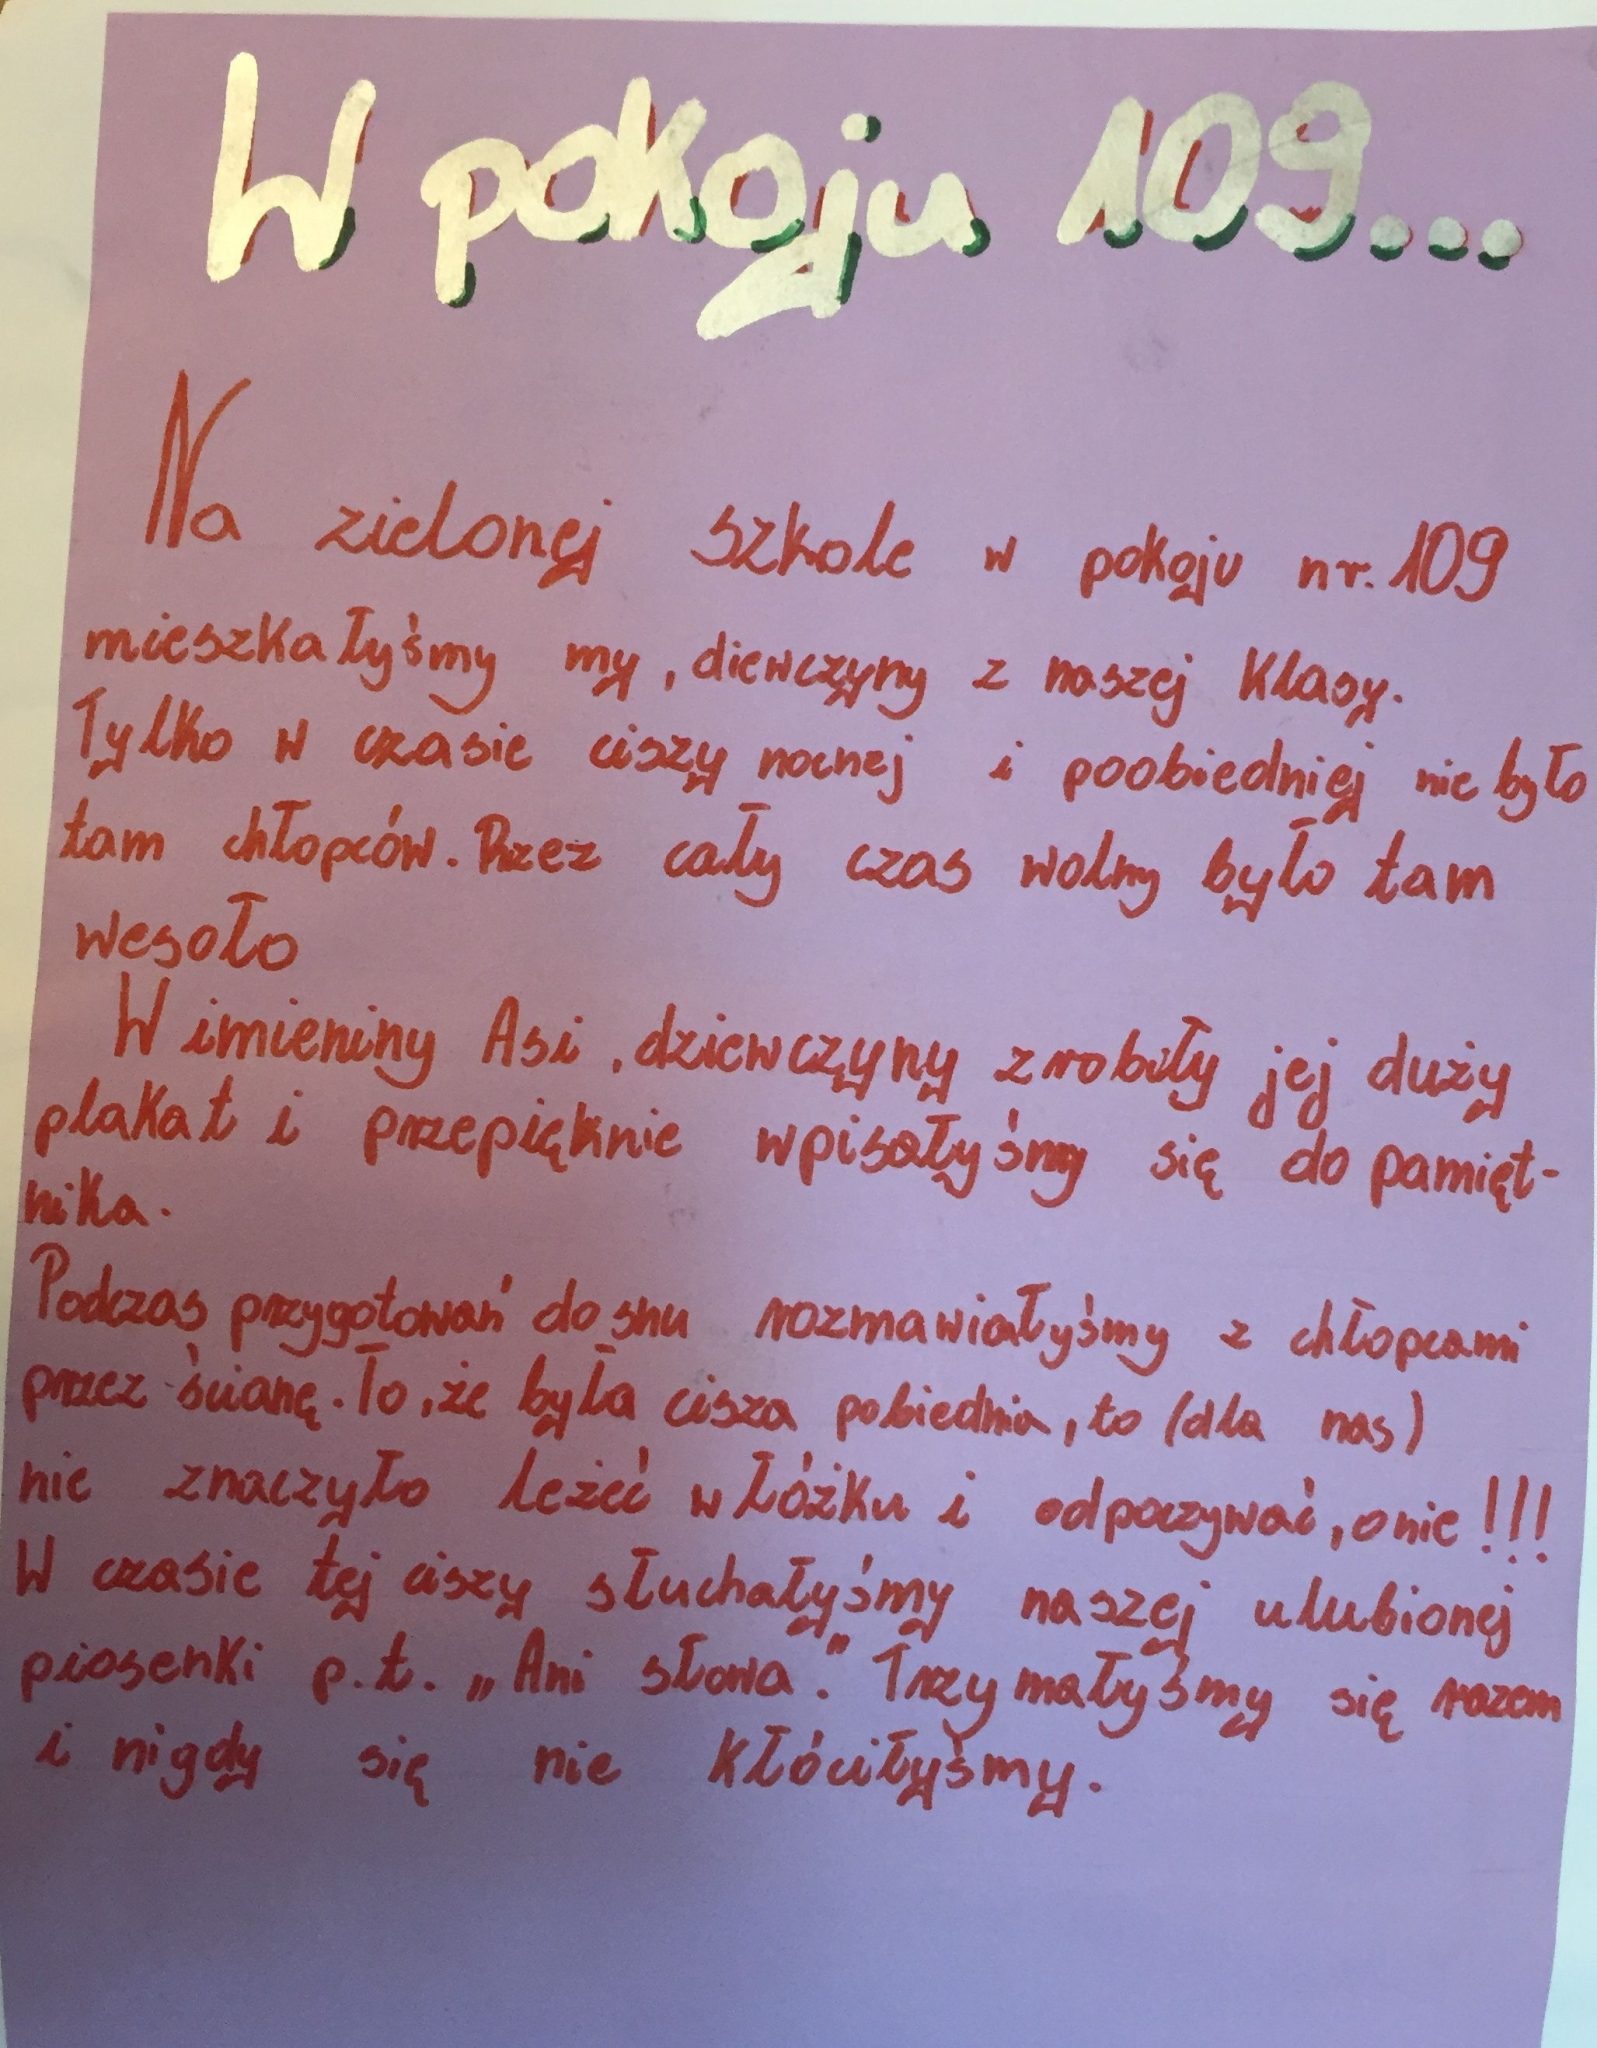 W pokoju 109...
Na zielonej szkole w pokoju nr. 109
mieszkałyśmy my, diewczyny z naszej klasy.
Tylko w czasie ciszy nocnej i poobiedniej nie było
tam chłopców. Przez cały czas wolny było tam
wesoło
W imieniny Asi, dziewczyny zrobiły jej duży
plakat i przepięknie wpisałyśmy się do pamięt-
nika.
Podczas przygotowań do snu rozmawiałyśmy z chłopcami
przez ścianę. To, że była cisza pobiednia, to (dla nas)
nie znaczyło leżeć w łóżku i odpoczywać, o nie!!!
W czasie tej ciszy słuchałyśmy naszej ulubionej
piosenki p.t. „Ani słowa." Trzymałyśmy się razem
i nigdy się nie kłóciłyśmy.